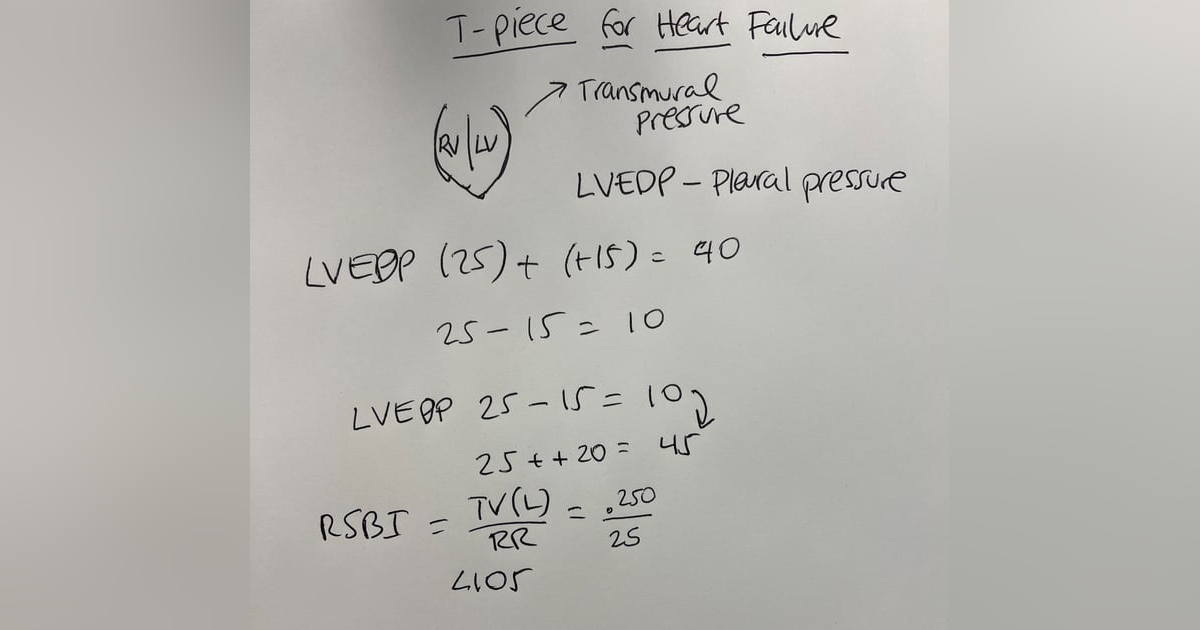 T-piece for Heart Failure
Transmural
pressure
RV LV
LVEDP - Pleural pressure
LVEDP (25) + (+15) = 40
25 - 15 = 10
LVEDP 25 - 15 = 10
25 + + 20 = 45
RSBI = TV(L) / RR = .250 / 25
<105